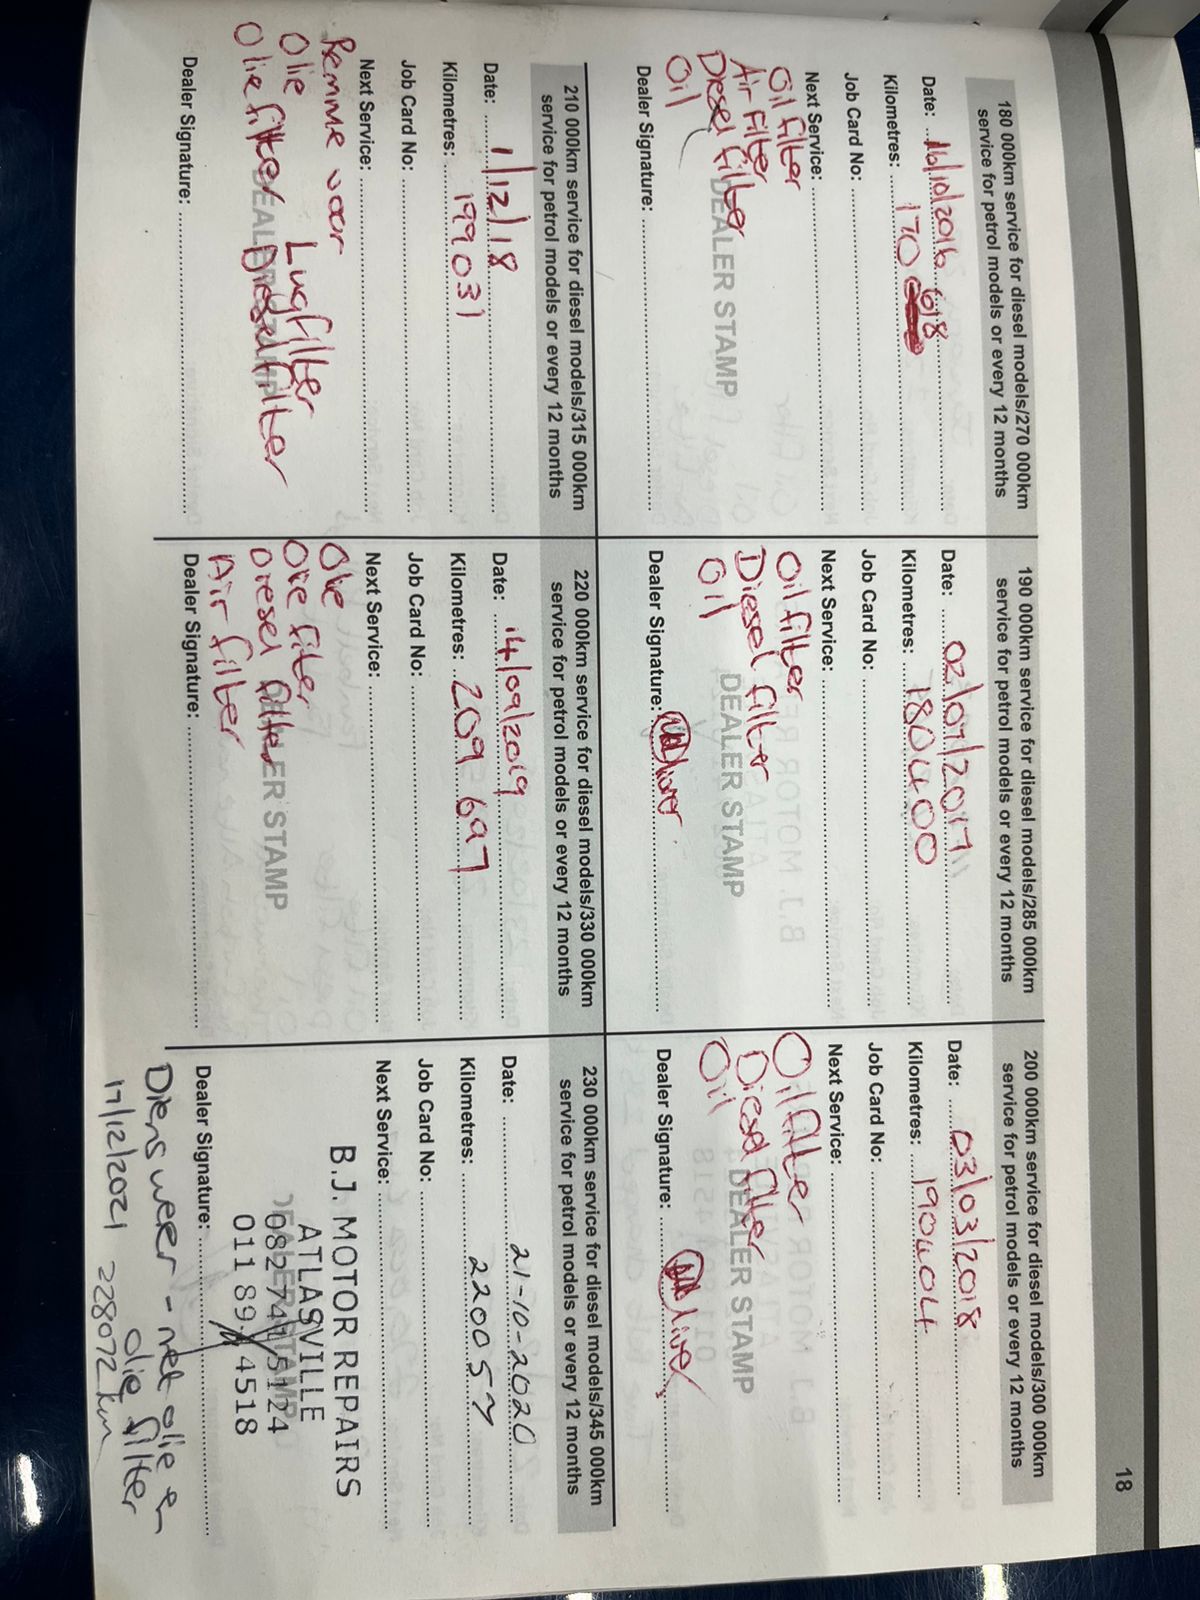 18
180 000km service for diesel models/270 000km
service for petrol models or every 12 months
Date: 16/10/2016
Kilometres: 170 618
Job Card No:
Next Service:
Oil filter
Air Filter
Diesel filter
Oil
DEALER STAMP
Dealer Signature:
190 000km service for diesel models/285 000km
service for petrol models or every 12 months
Date: 02/07/2017
Kilometres: 180400
Job Card No:
Next Service:
Oil filter
Diesel filter
Oil
DEALER STAMP
Dealer Signature:
200 000km service for diesel models/300 000km
service for petrol models or every 12 months
Date: 03/03/2018
Kilometres: 190404
Job Card No:
Next Service:
Oil filter
Diesel filter
Oil
DEALER STAMP
Dealer Signature:
210 000km service for diesel models/315 000km
service for petrol models or every 12 months
Date: 1/12/18
Kilometres: 199031
Job Card No:
Next Service:
Remme voor
Olie Lugfilter
Olie filter Diesel filter
DEALER STAMP
Dealer Signature:
220 000km service for diesel models/330 000km
service for petrol models or every 12 months
Date: 14/09/2019
Kilometres: 209 697
Job Card No:
Next Service:
Olie
Olie filter
Diesel filter
Air filter
DEALER STAMP
Dealer Signature:
230 000km service for diesel models/345 000km
service for petrol models or every 12 months
Date: 21-10-2020
Kilometres: 220057
Job Card No:
Next Service:
B.J. MOTOR REPAIRS
ATLASVILLE
082 741 5124
011 894 4518
DEALER STAMP
Dealer Signature:
Diens weer - net olie en
olie filter
17/12/2021 228072 km